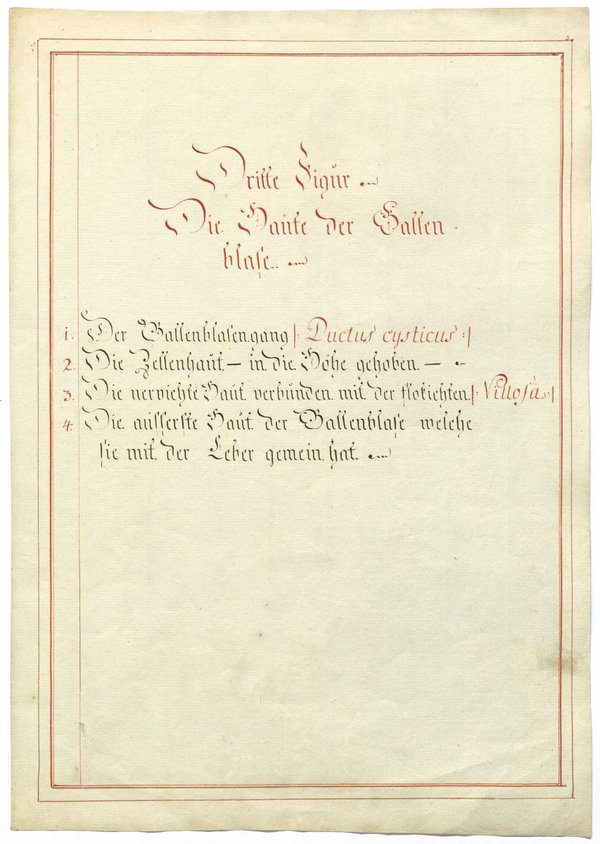 Dritte Figur
Die Häute der Gallen
blase.
1. Der Gallenblasengang |: Ductus cysticus :|
2. Die Zellenhaut – in die Höhe gehoben –
3. Die nervichte Haut verbunden mit der flokichten |: Villosa :|
4. Die äusserste Haut der Gallenblase welche
sie mit der Leber gemein hat.